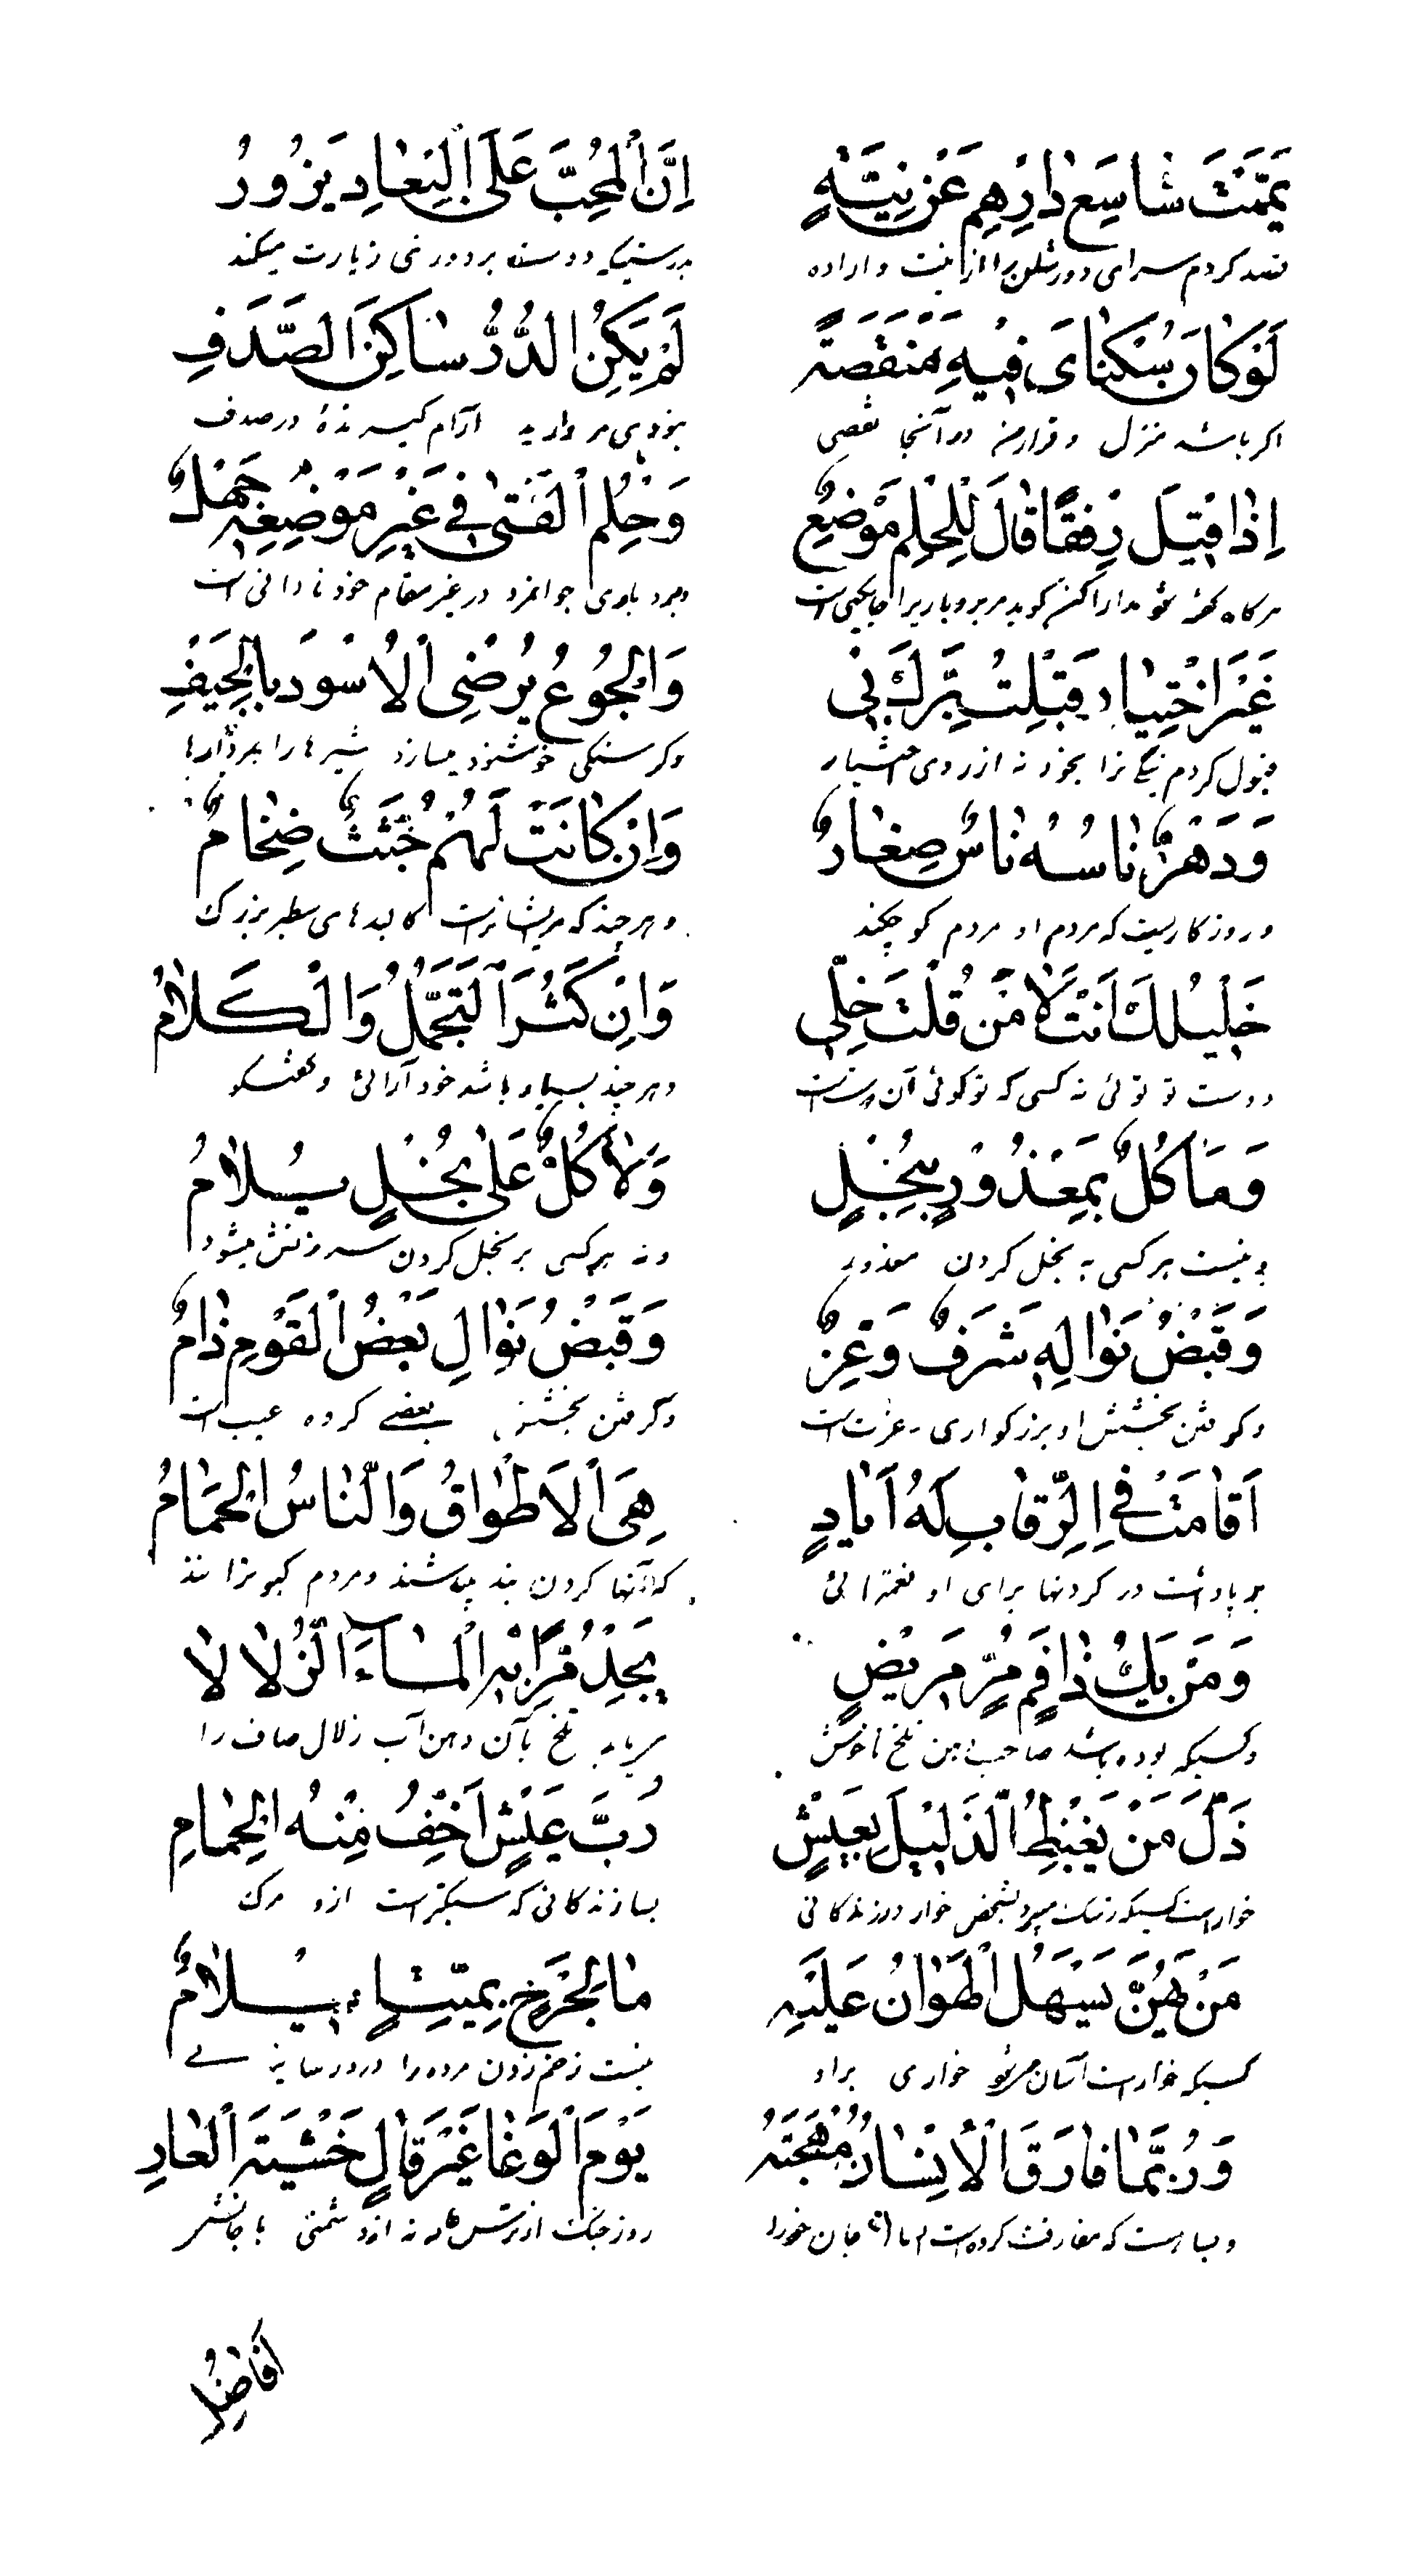 يَمَّمْتُ شاسِعَ دارِهِم عَنْ نِيَّةٍ اِنَّ الْمُحِبَّ عَلَى الْبِعادِ يَزُورُ
قصد کردم سرای دور شان را از نیت و اراده بدرستیکه دوست بر دوری زیارت میکند
لَوْ كانَ سُكْنايَ فِيهِ مَنْقَصَةً لَمْ يَكُنِ الدُّرُّ ساكِنَ الصَّدَفِ
اکر باشد منزل و قرار من در آنجا نقصی نبودی مروارید آرام کیرنده در صدف
اِذا قِيلَ رِفْقًا قالَ لِلْحِلْمِ مَوْضِعٌ وَحِلْمُ الْفَتىٰ فِي غَيْرِ مَوْضِعِهِ جَهْلٌ
هرکاه کفته شود مدارا کن کوید مر بردباریرا جایکهی است و بردباری جوانمرد در غیر مقام خود نادانی است
غَيْرَ اخْتِيارٍ قَبِلْتُ بِرَّكَ بِي وَالْجُوعُ يُرْضِي الْاُسُودَ بِالْجِيَفِ
قبول کردم نیکی ترا بخود نه از روی اختیار و کرسنکی خوشنود میسازد شیرها را بمردارها
وَدَهْرٌ ناسُهُ ناسٌ صِغارٌ وَاِنْ كانَتْ لَهُمْ جُثَثٌ ضِخامٌ
و روزکاریست که مردم او مردم کوچکند و هرچند که مر ایشانراست کالبدهای سطبر بزرک
خَلِيلُكَ اَنْتَ لا مَنْ قُلْتَ خِلِّي وَاِنْ كَثُرَ التَّجَمُّلُ وَالْكَلامُ
دوست تو توئی نه کسی که تو کوئی آن دوست است و هرچند بسیار باشد خود آرائی و کفتکو
وَمَا كُلٌّ بِمَعْذُورٍ بِبُخْلٍ وَلا كُلٌّ عَلىٰ بُخْلٍ يُلامُ
و نیست هر کسی به بخل کردن معذور و نه هر کسی بر بخل کردن سرزنش میشود
وَقَبْضُ نَوالِهِ شَرَفٌ وَعِزٌّ وَقَبْضُ نَوالِ بَعْضِ الْقَوْمِ ذامٌ
و کرفتن بخشش او بزرکواری و عزت است و کرفتن بخشش بعضی کروه عیب است
اَقامَتْ فِي الرِّقابِ لَهُ اَيادٍ هِيَ الْاَطْواقُ وَالنّاسُ الْحَمامُ
برپا داشت در کردنها برای او نعمتهائی که آنها کردن بند میباشند و مردم کبوترانند
وَمَنْ يَكُ ذا فَمٍ مُرٍّ مَرِيضٍ يَجِدْ مُرًّا بِهِ الْماءَ الزُّلالا
و کسیکه بوده باشد صاحب دهن تلخ ناخوش میباید تلخ بآن دهن آب زلال صاف را
ذَلَّ مَنْ يَغْبِطُ الذَّلِيلَ بِعَيْشٍ رُبَّ عَيْشٍ اَخَفُّ مِنْهُ الْحِمامُ
خوار است کسیکه رشک میبرد بشخص خوار در زندکانی بسا زندکانی که سبکتر است ازو مرک
مَنْ يَهُنْ يَسْهُلِ الْهَوانُ عَلَيْهِ ما لِجُرْحٍ بِمَيِّتٍ اِيلامٌ
کسیکه خوار است آسان میشود خواری بر او نیست زخم زدن مرده را درد رسانید نی
وَرُبَّما فارَقَ الْاِنْسانُ مُهْجَتَهُ يَوْمَ الْوَغا غَيْرَ قالٍ خَشْيَةَ الْعارِ
و بسا است که مفارقت کرده است انسان جان خود را روز جنک از ترس عار نه از دشمنی با جانش
اَفاضِلُ